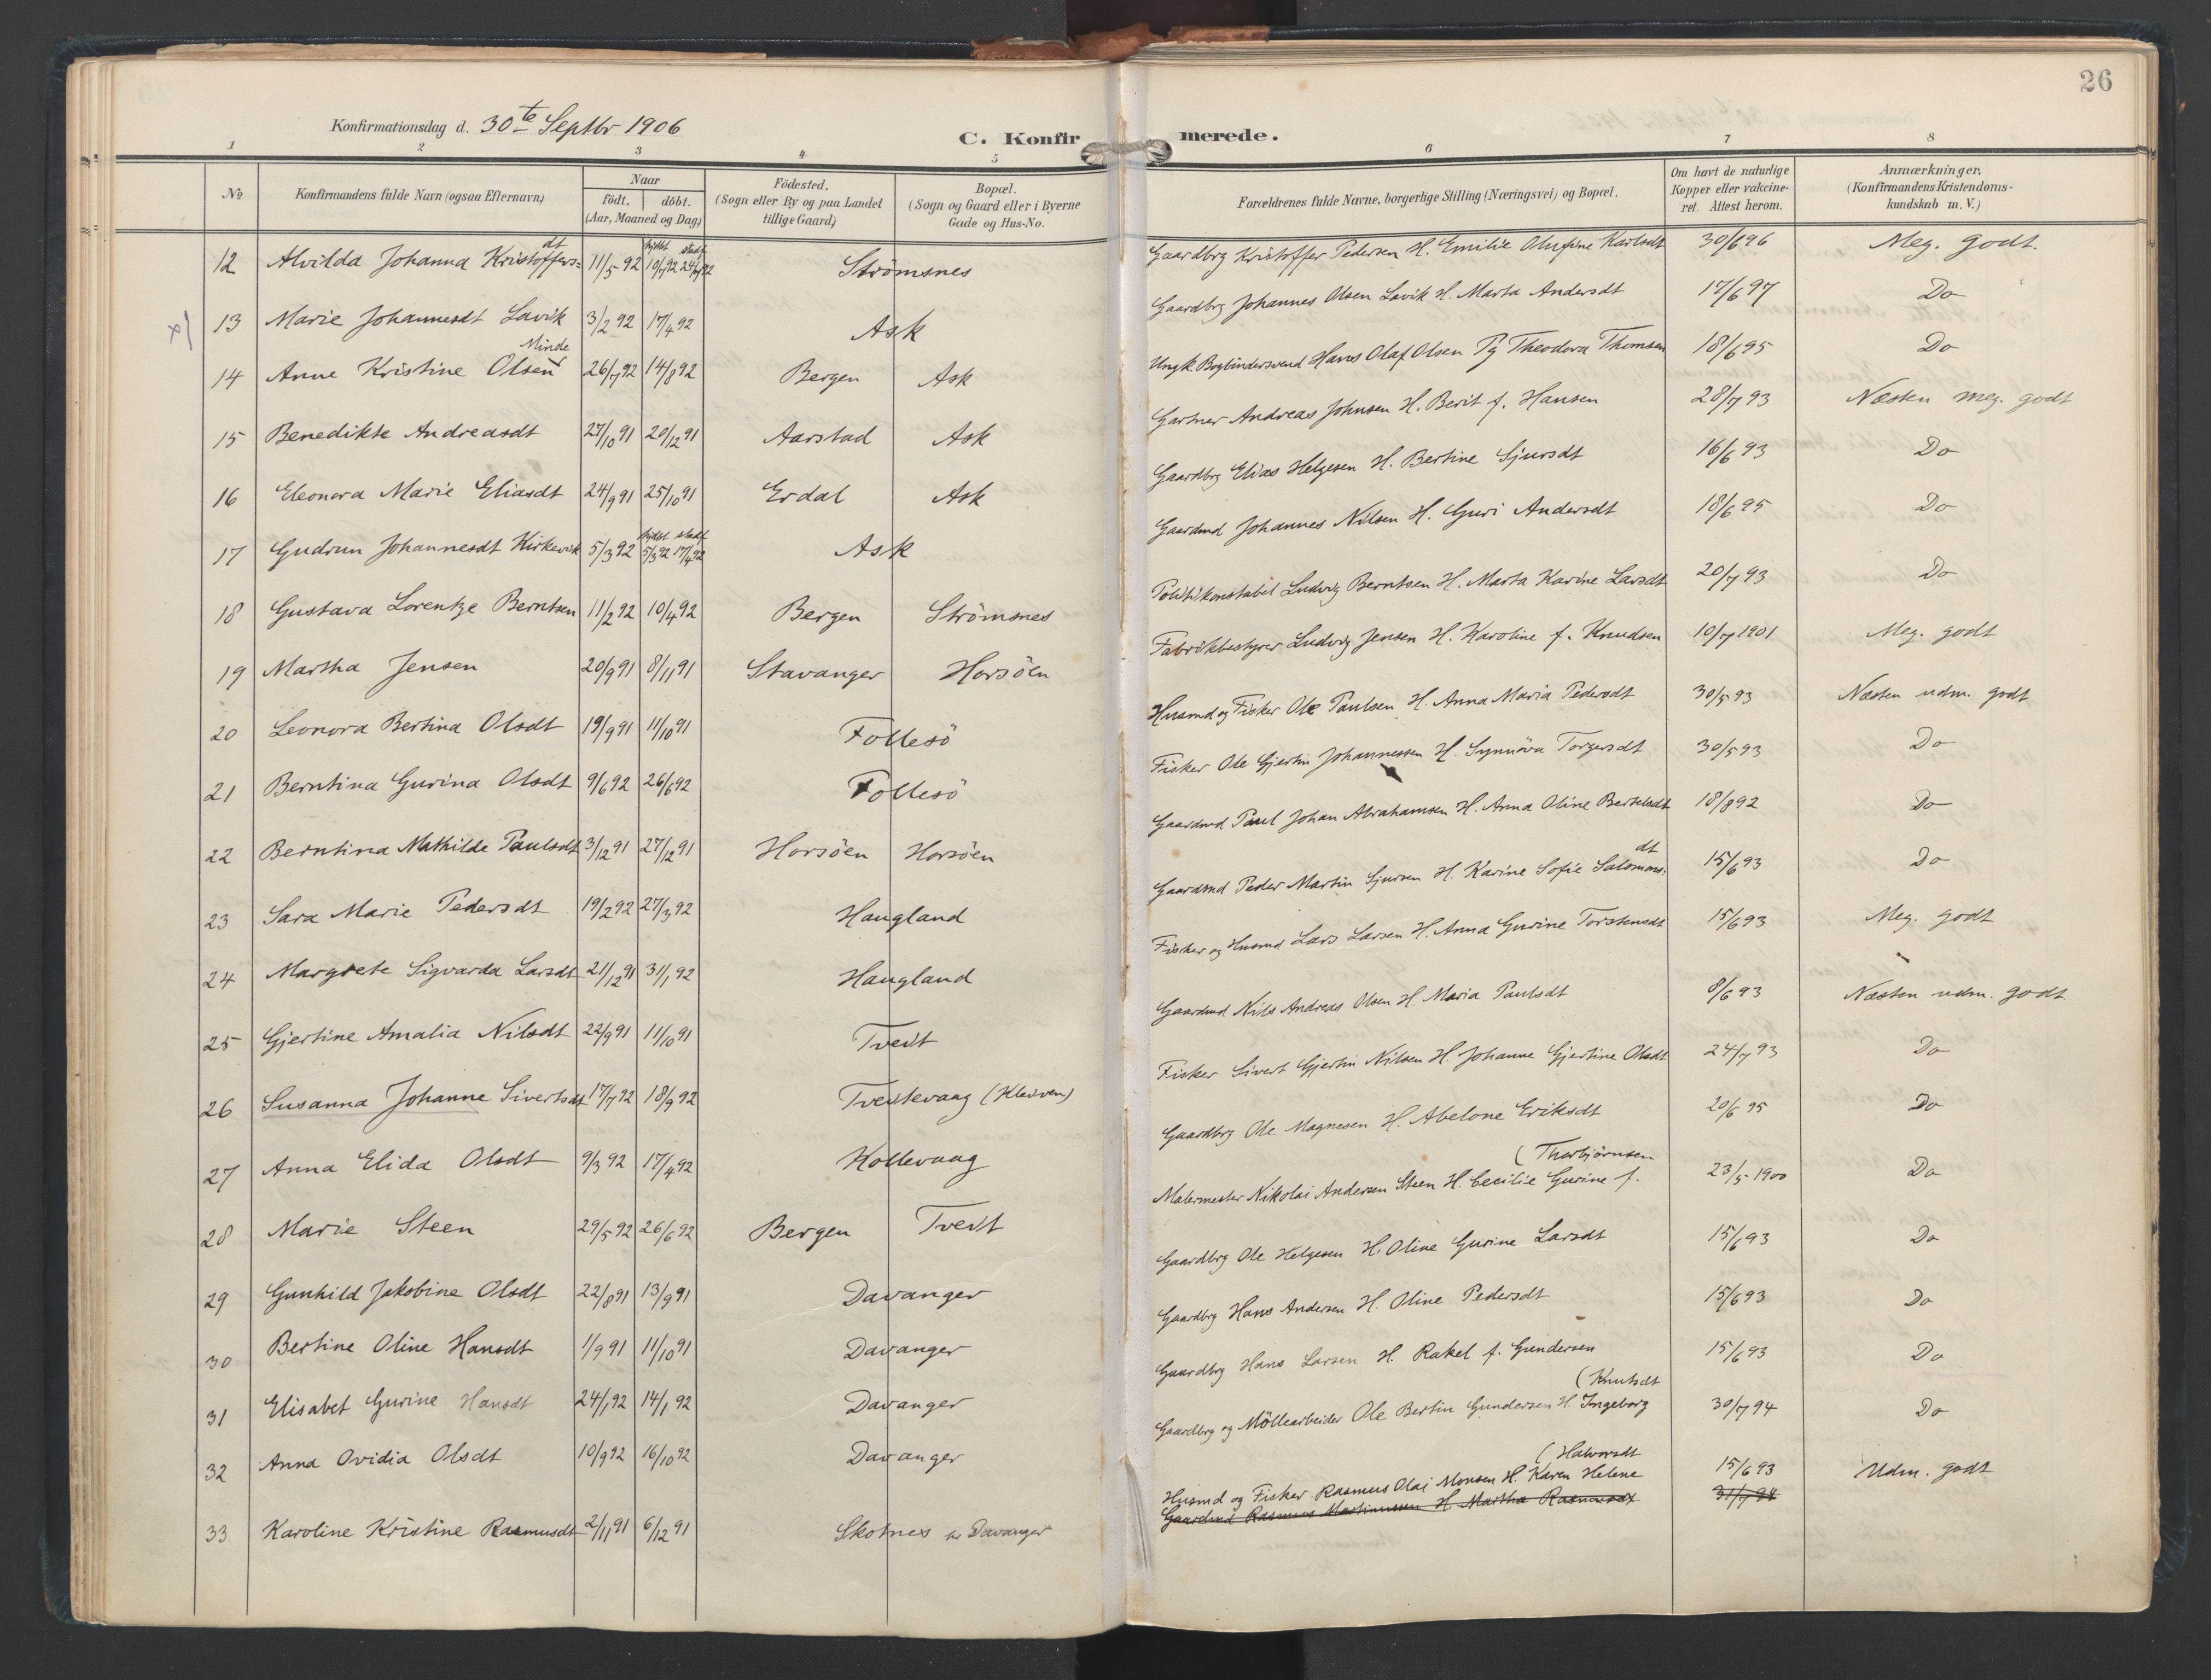 26
Konfirmationsdag d. 30te Septbr 1906
C. Konfirmerede.
1 2 3 4 5 6 7 8
No
Konfirmandens fulde Navn (ogsaa Efternavn)
Naar
födt. döbt.
(Aar, Maaned og Dag)
Födested.
(Sogn eller By og paa Landet
tillige Gaard)
Bopæl.
(Sogn og Gaard eller i Byerne
Gade og Hus-No.
Forældrenes fulde Navne, borgerlige Stilling (Næringsvei) og Bopæl.
Om havt de naturlige
Kopper eller vakcine-
ret. Attest herom.
Anmærkninger.
(Konfirmandens Kristendoms-
kundskab m. V.)
12 Alvilda Johanna Kristoffers=dt 11/5 92 hjdbt 10/7 92 stadf 24/7 92 Strömsnes Gaardbrg Kristoffer Pedersen H. Emilie Olufine Karlsdt 30/6 96 Meg. godt.
13 Marie Johannesdt Lavik 3/2 92 17/4 92 Ask Gaardbrg Johannes Olsen Lavik H. Marta Andersdt 17/6 97 Do
14 Anne Kristine Olsen Minde 26/7 92 14/8 92 Bergen Ask Ungk. Bogbindersvend Hans Olaf Olsen Pg Theodora Thomsen 18/6 95 Do
15 Benedikte Andreasdt 27/10 91 20/12 91 Aarstad Ask Gartner Andreas Johnsen H. Berit f. Hansen 28/7 93 Næsten meg. godt
16 Eleonora Marie Eliasdt 24/9 91 25/10 91 Erdal Ask Gaardbrg Elias Helgesen H. Bertine Sjursdt 16/6 93 Do
17 Gudrun Johannesdt Kirkevik 5/3 92 hjdbt 5/3 92 stadf 17/4 92 Ask Gaardmd Johannes Nilsen H. Guri Andersdt 18/6 95 Do
18 Gustava Lorentze Berntsen 11/2 92 10/4 92 Bergen Strömsnes Politikonstabel Ludvig Berntsen H. Marta Karine Larsdt 20/7 93 Do
19 Martha Jensen 20/9 91 8/11 91 Stavanger Horsöen Fabrikbestyrer Ludvig Jensen H. Karoline f. Knudsen 10/7 1901 Meg. godt
20 Leonora Bertina Olsdt 19/9 91 11/10 91 Follesö Husmd og Fisker Ole Paulsen H. Anna Maria Pedersdt 30/5 93 Næsten udm. godt
21 Berntina Gurina Olsdt 9/6 92 26/6 92 Follesö Fisker Ole Gjertin Johannessen H. Synnöva Torgersdt 30/5 93 Do
22 Berntina Mathilde Paulsdt 3/12 91 27/12 91 Horsöen Horsöen Gaardmd Paul Johan Abrahamsen H. Anna Oline Bertelsdt 18/8 92 Do
23 Sara Marie Pedersdt 19/2 92 27/3 92 Haugland Gaardmd Peder Martin Sjursen H. Karine Sofie Salomons.dt 15/6 93 Do
24 Margrete Sigvarda Larsdt 21/12 91 31/1 92 Haugland Fisker og Husmd Lars Larsen H. Anna Gurine Torstensdt 15/6 93 Meg. godt
25 Gjertine Amalia Nilsdt 22/9 91 11/10 91 Tveit Gaardmd Nils Andreas Olsen H Maria Paulsdt 8/6 93 Næsten udm. godt
26 Susanna Johanne Sivertsdt 17/7 92 18/9 92 Tveitevaag (Kleiven) Fisker Sivert Gjertin Nilsen H. Johanne Gjertine Olsdt 24/7 93 Do
27 Anna Elida Olsdt 9/3 92 17/4 92 Kollevaag Gaardbrg Ole Magnesen H. Abelone Eriksdt 20/6 95 Do
28 Marie Steen 29/5 92 26/6 92 Bergen Tveit Malermester Nikolai Andersen Steen H. Cecilie Gurine f. (Thorbjörnsen 23/5 1900 Do
29 Gunhild Jakobine Olsdt 22/8 91 13/9 91 Davanger Gaardbrg Ole Helgesen H. Oline Gurine Larsdt 15/6 93 Do
30 Bertine Oline Hansdt 1/9 91 11/10 91 Davanger Gaardbrg Hans Andersen H. Oline Pedersdt 15/6 93 Do
31 Elisabet Gurine Hansdt 24/1 92 14/1 92 Davanger Gaardbrg Hans Larsen H. Rakel f. Gundersen 15/6 93 Do
32 Anna Ovidia Olsdt 10/9 92 16/10 92 Davanger Gaardbrg og Möllearbeider Ole Bertin Gundersen H. Ingeborg (Knutsdt 30/7 94 Do
33 Karoline Kristine Rasmusdt 2/11 91 6/12 91 Skotnes Davanger Husmd og Fisker Rasmus Olai Monsen H. Karen Helene (Halvorsdt 15/6 93 Udm. godt
Gaardmd Rasmus Martinussen H. Martha Rasmusdt 31/7 94